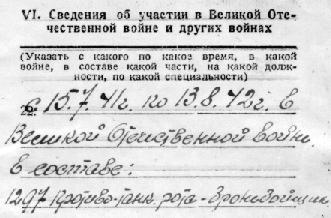 VI. Сведения об участии в Великой Оте-
чественной войне и других войнах
(Указать с какого по какое время, в какой
войне, в составе какой части, на какой долж-
ности, по какой специальности)
с 15.7.41г. по 13.8.42г. в
Великой Отечественной войне
в составе:
1297 Противо-танк. рота - бронебойщик